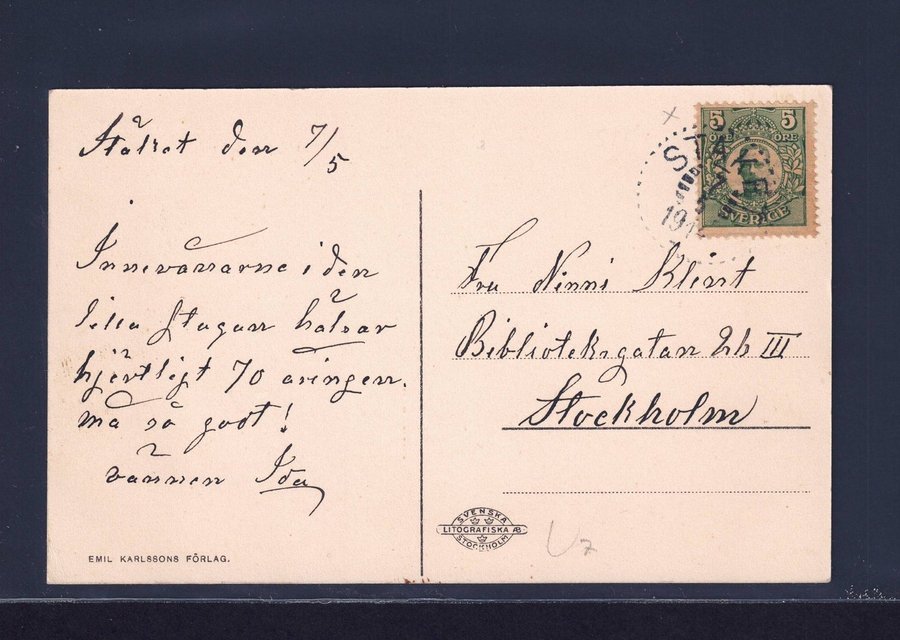 Stäket den 7/5
Innevånarne i den
lilla stugan hälsar
hjertligt 70 åringen.
må så godt!
vännen Ida
EMIL KARLSSONS FÖRLAG.
5 5
ÖRE ÖRE
SVERIGE
STÄKET
Fru Ninni Klint
Biblioteksgatan 2b III
Stockholm
SVENSKA
LITOGRAFISKA AB
STOCKHOLM